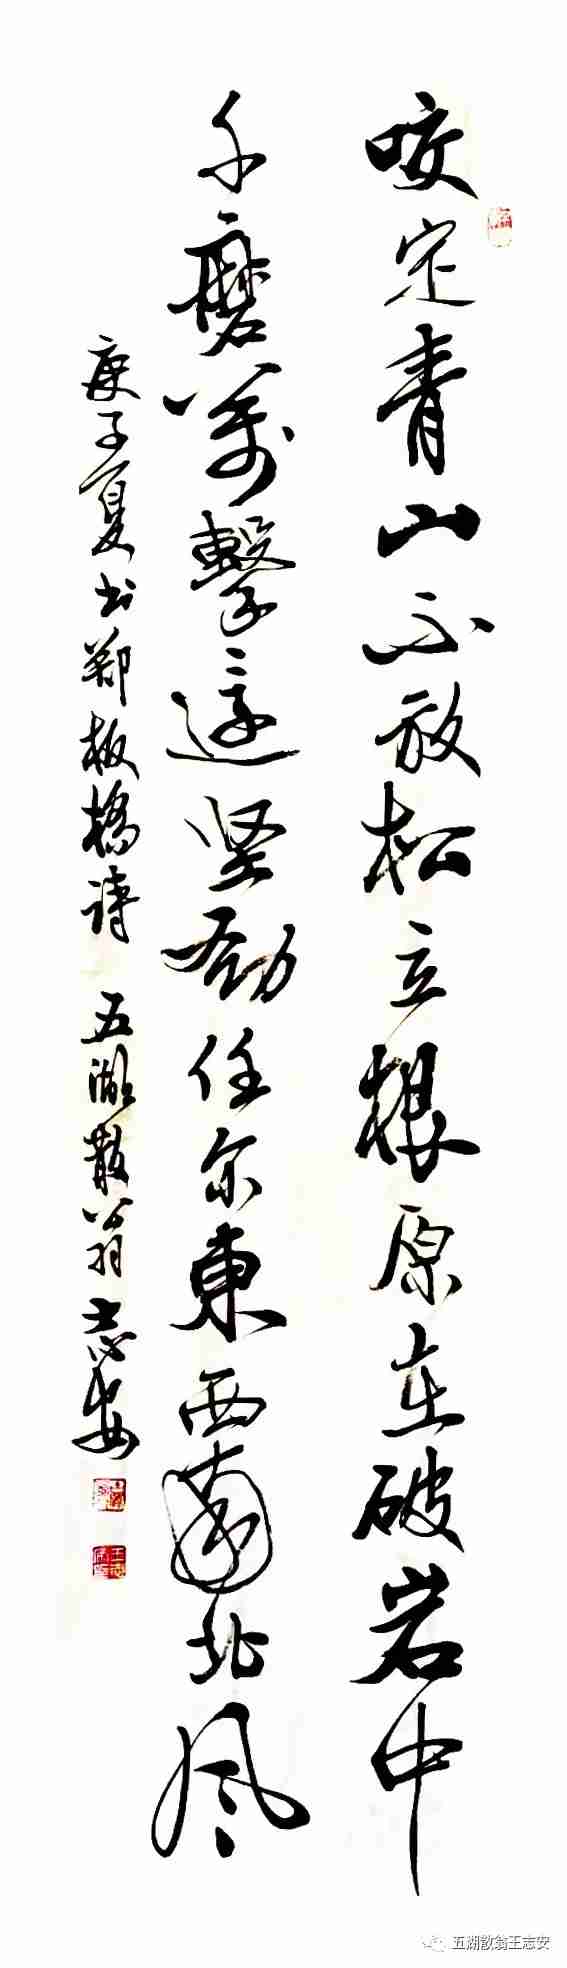 咬定青山不放松立根原在破岩中
千磨萬擊還坚劲任尔東西南北风
庚子夏书郑板橋诗 五湖散翁志安
五湖散翁王志安